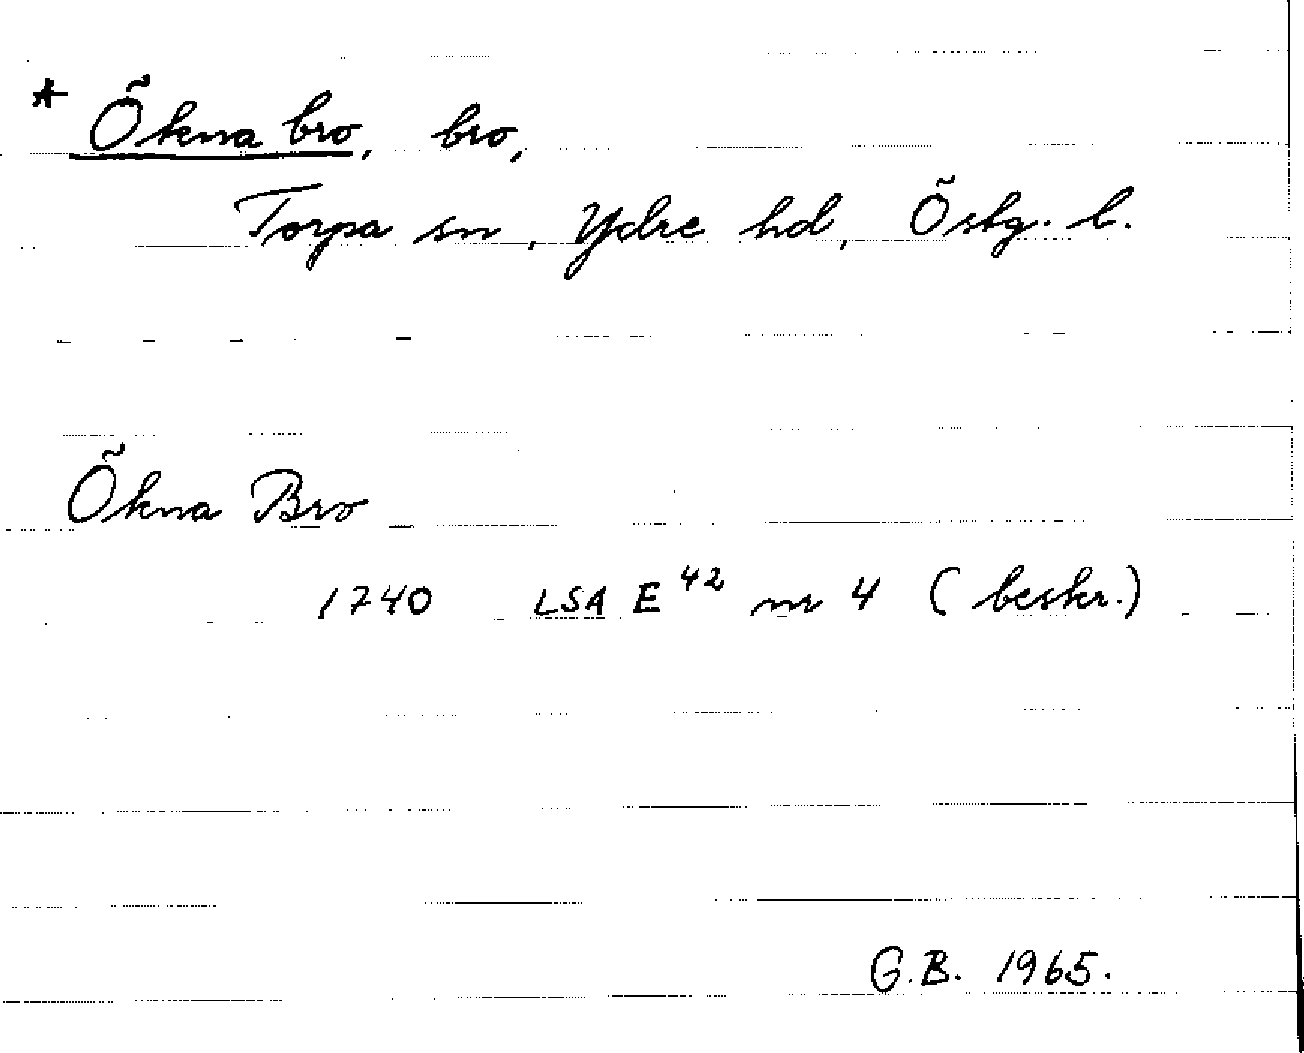 * Ökna bro, bro,
Torpa sn, Ydre hd, Östg. l.
Ökna Bro
1740 LSA E⁴² nr 4 (beskr.)
G.B. 1965.